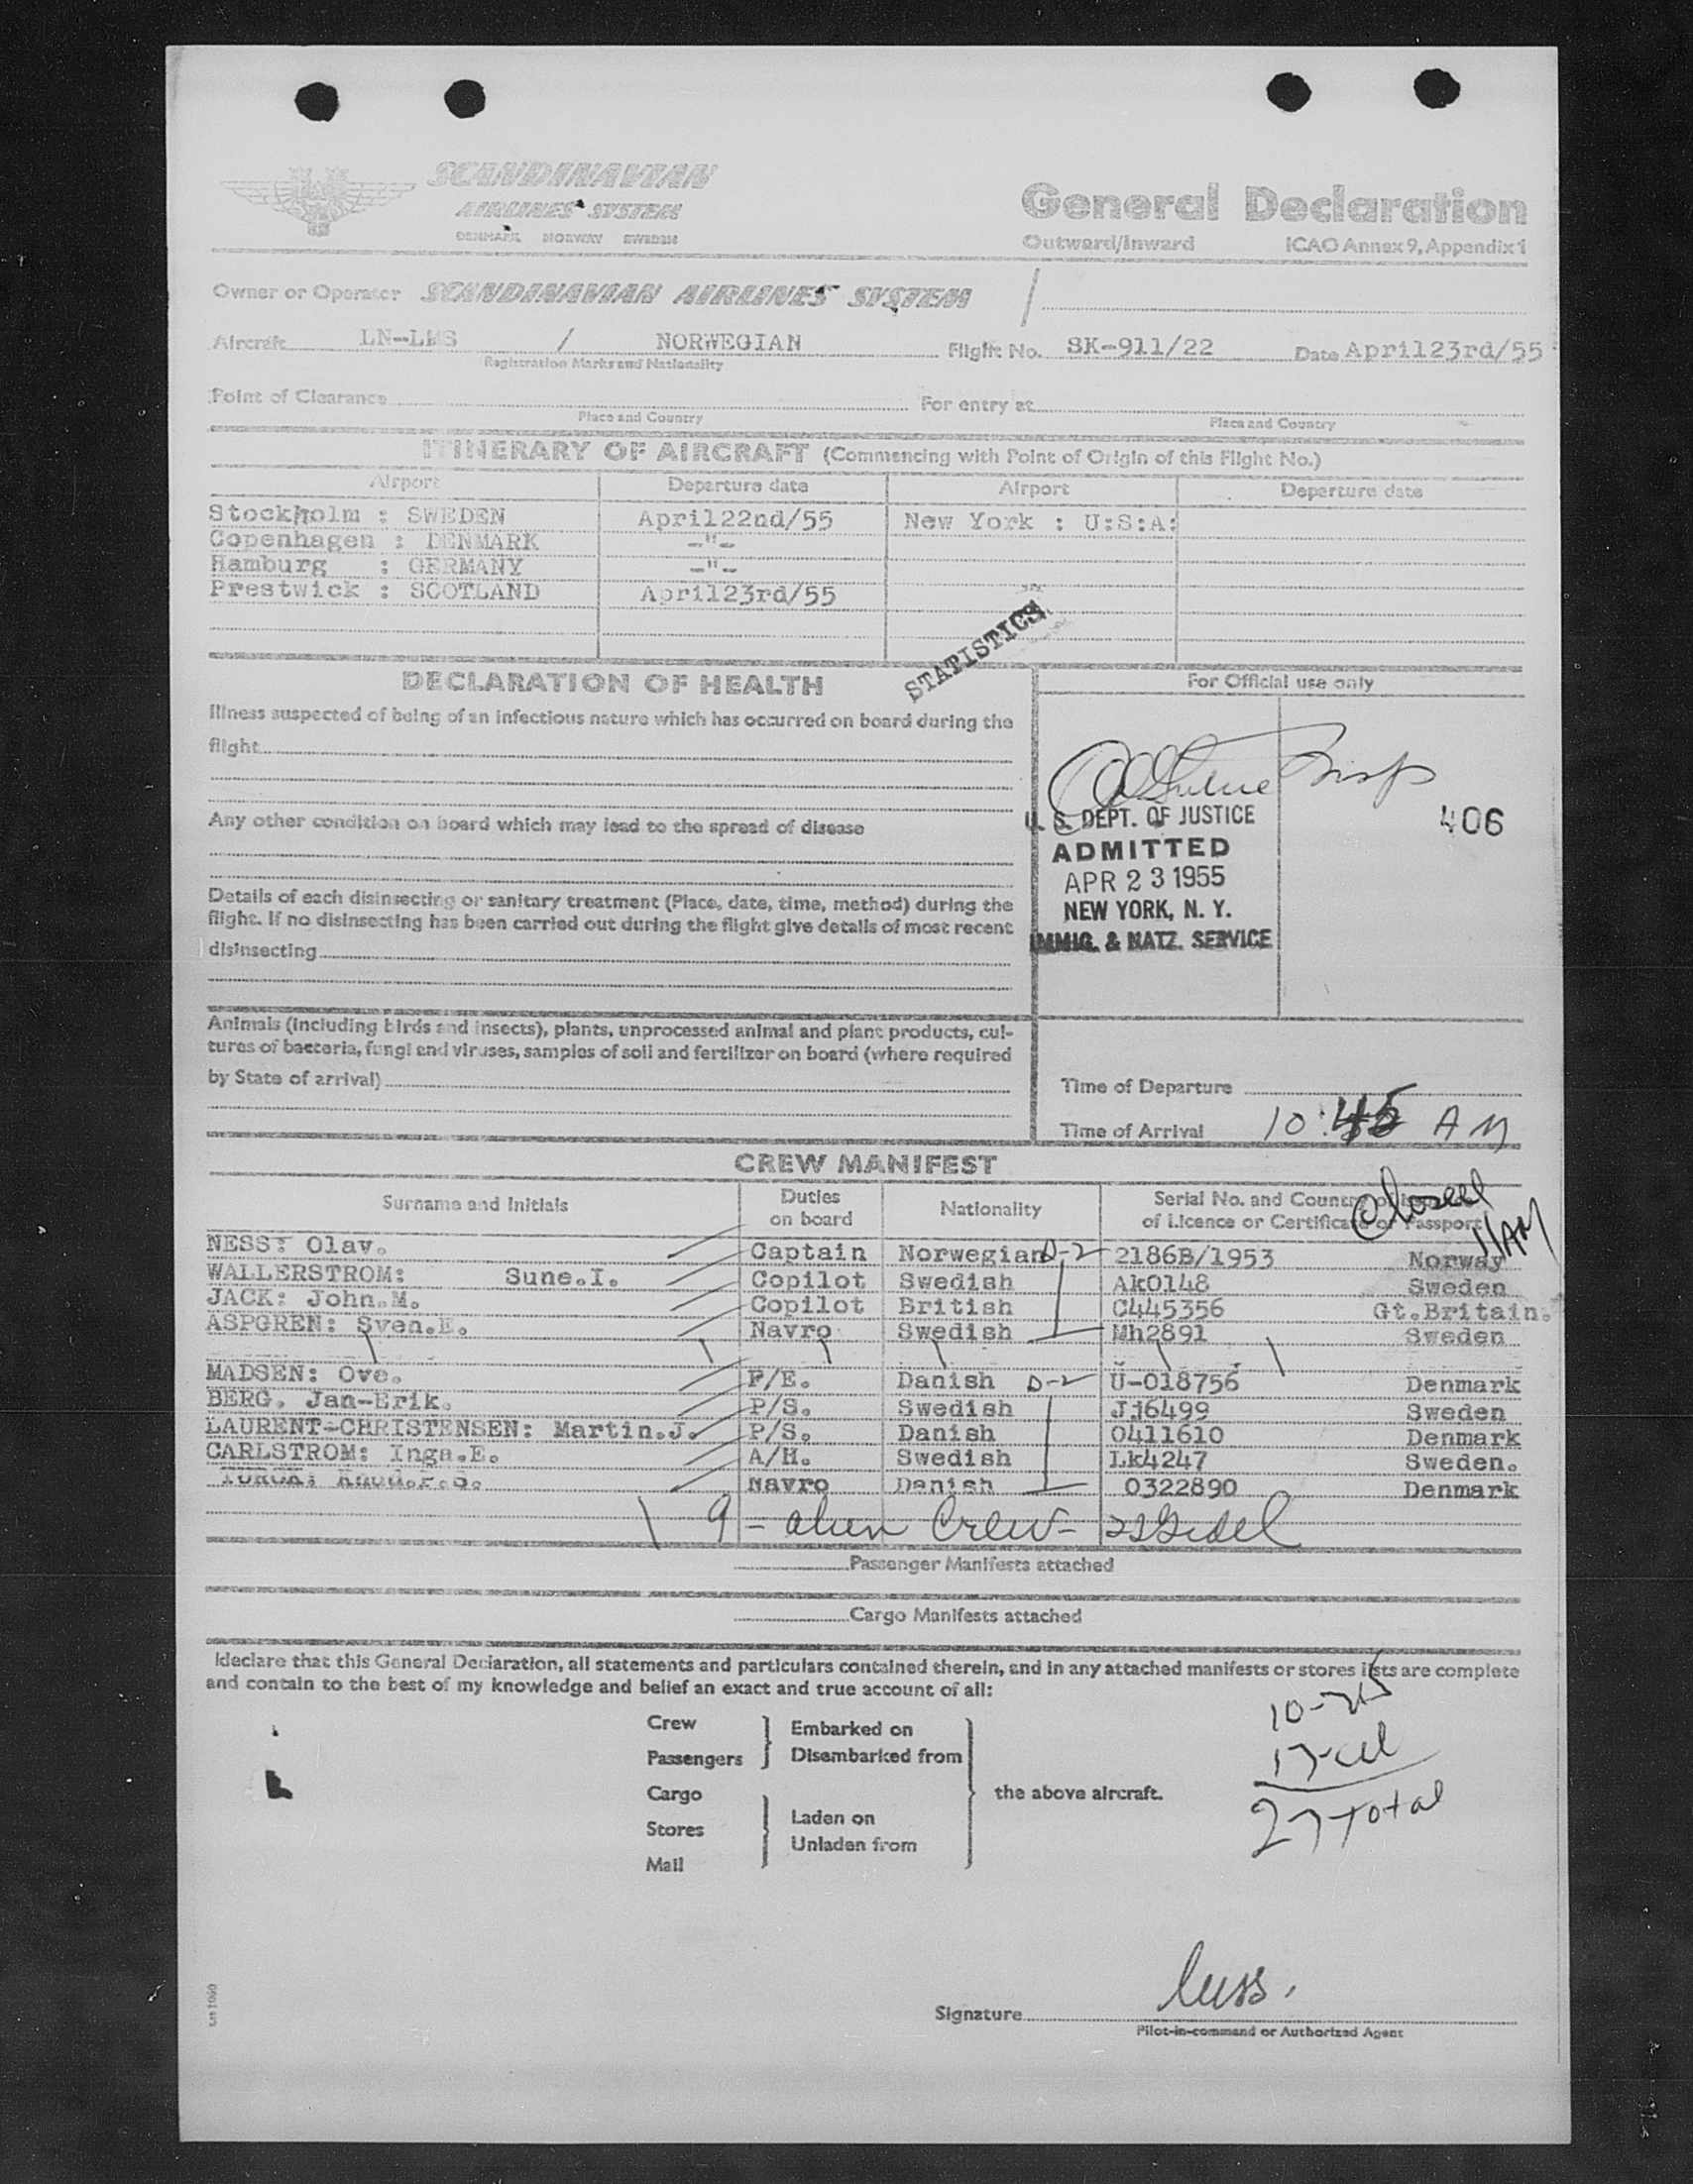 SCANDINAVIAN
AIRLINES SYSTEM
DENMARK NORWAY SWEDEN
General Declaration
Outward/Inward ICAO Annex 9, Appendix 1
Owner or Operator SCANDINAVIAN AIRLINES SYSTEM /
Aircraft LN-LMS / NORWEGIAN Flight No. SK-911/22 Date April23rd/55
Registration Marks and Nationality
Point of Clearance For entry at
Place and Country Place and Country
ITINERARY OF AIRCRAFT (Commencing with Point of Origin of this Flight No.)
Airport Departure date Airport Departure date
Stockholm : SWEDEN April22nd/55 New York : U:S:A:
Copenhagen : DENMARK -"-
Hamburg : GERMANY -"-
Prestwick : SCOTLAND April23rd/55
STATISTICS
DECLARATION OF HEALTH
For Official use only
Illness suspected of being of an infectious nature which has occurred on board during the
flight
Any other condition on board which may lead to the spread of disease
Details of each disinsecting or sanitary treatment (Place, date, time, method) during the
flight. If no disinsecting has been carried out during the flight give details of most recent
disinsecting
Insp
U. S. DEPT. OF JUSTICE
ADMITTED
APR 23 1955
NEW YORK, N. Y.
IMMIG. & NATZ. SERVICE
406
Animals (including birds and insects), plants, unprocessed animal and plant products, cul-
tures of bacteria, fungi and viruses, samples of soil and fertilizer on board (where required
by State of arrival)
Time of Departure
Time of Arrival 10:45 AM
CREW MANIFEST
Surname and Initials Duties on board Nationality Serial No. and Country of Issue of Licence or Certificate or Passport
Closed 11AM
NESS: Olav. Captain Norwegian D-2 2186B/1953 Norway
WALLERSTROM: Sune.I. Copilot Swedish Ak0148 Sweden
JACK: John.M. Copilot British C445356 Gt.Britain.
ASPGREN: Sven.E. Navro Swedish Mh2891 Sweden
MADSEN: Ove. F/E. Danish D-2 U-018756 Denmark
BERG. Jan-Erik. P/S. Swedish Jj6499 Sweden
LAURENT-CHRISTENSEN: Martin.J. P/S. Danish 0411610 Denmark
CARLSTROM: Inga.E. A/H. Swedish Lk4247 Sweden.
Navro Danish 0322890 Denmark
9 - alien Crew -
Passenger Manifests attached
Cargo Manifests attached
I declare that this General Declaration, all statements and particulars contained therein, and in any attached manifests or stores lists are complete
and contain to the best of my knowledge and belief an exact and true account of all:
Crew
Passengers
Embarked on
Disembarked from
Cargo
Stores
Mail
Laden on
Unladen from
the above aircraft.
27 total
Signature Ness.
Pilot-in-command or Authorized Agent